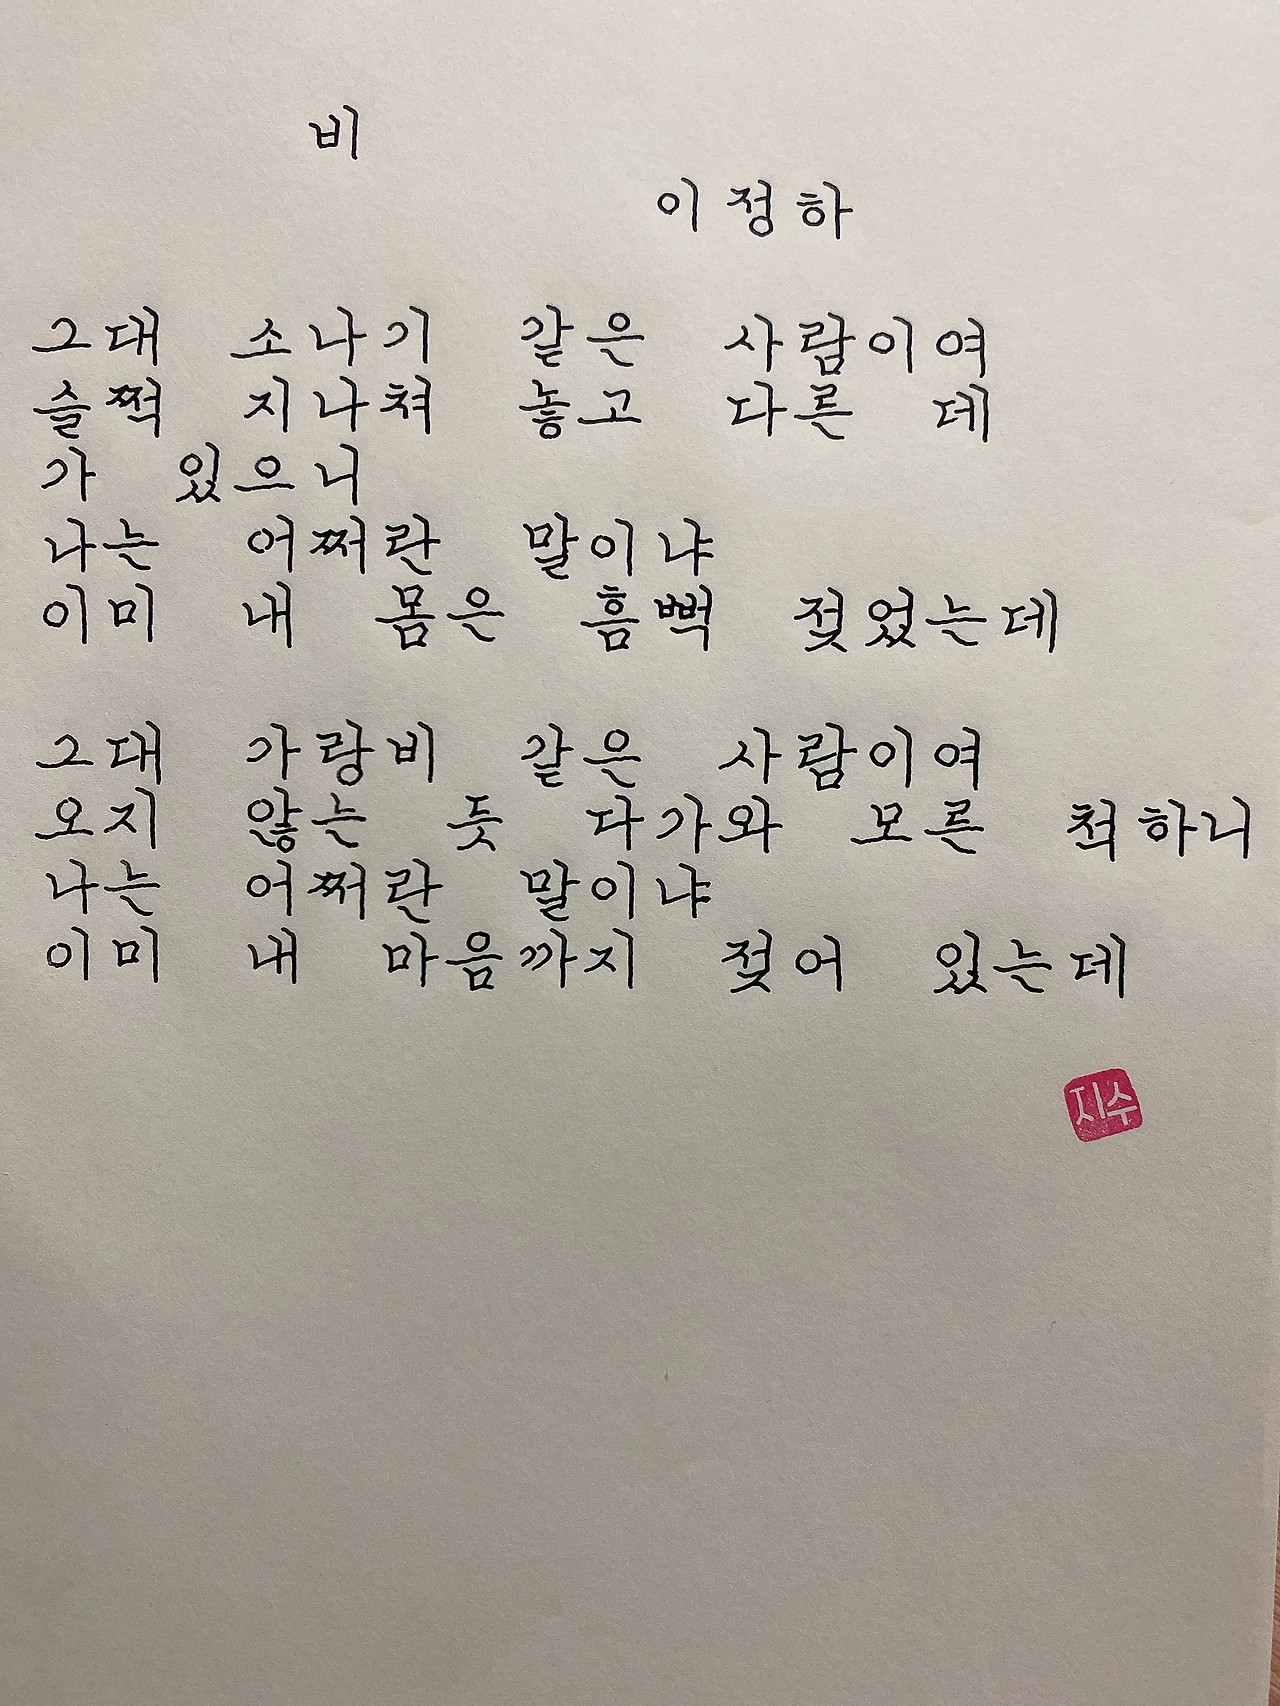 비
이정하
그대 소나기 같은 사람이여
슬쩍 지나쳐 놓고 다른 데
가 있으니
나는 어쩌란 말이냐
이미 내 몸은 흠뻑 젖었는데
그대 가랑비 같은 사람이여
오지 않는 듯 다가와 모른 척하니
나는 어쩌란 말이냐
이미 내 마음까지 젖어 있는데
지수